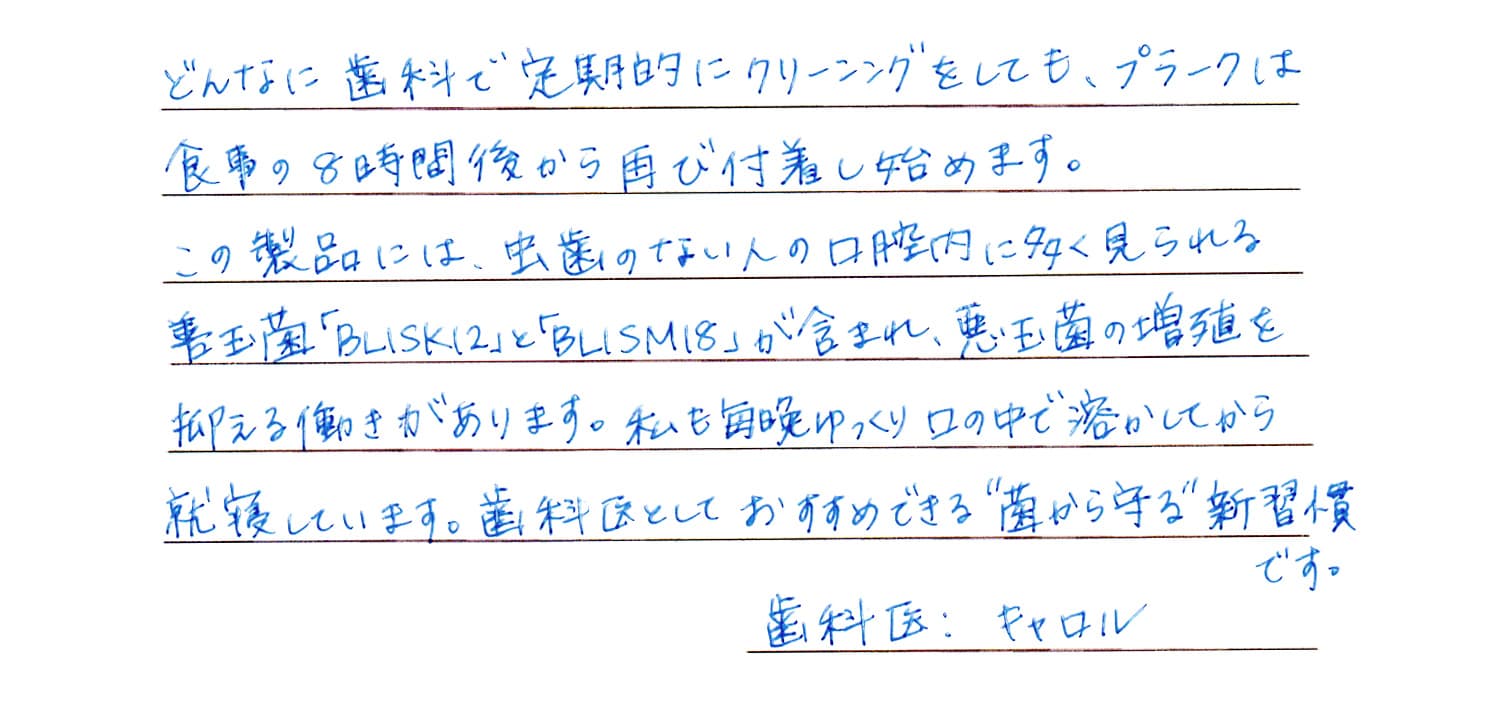 どんなに歯科で定期的にクリーニングをしても、プラークは
食事の8時間後から再び付着し始めます。
この製品には、虫歯のない人の口腔内に多く見られる
善玉菌「BLISK12」と「BLISM18」が含まれ、悪玉菌の増殖を
抑える働きがあります。私も毎晩ゆっくり口の中で溶かしてから
就寝しています。歯科医としておすすめできる"菌から守る"新習慣
です。
歯科医：キャロル